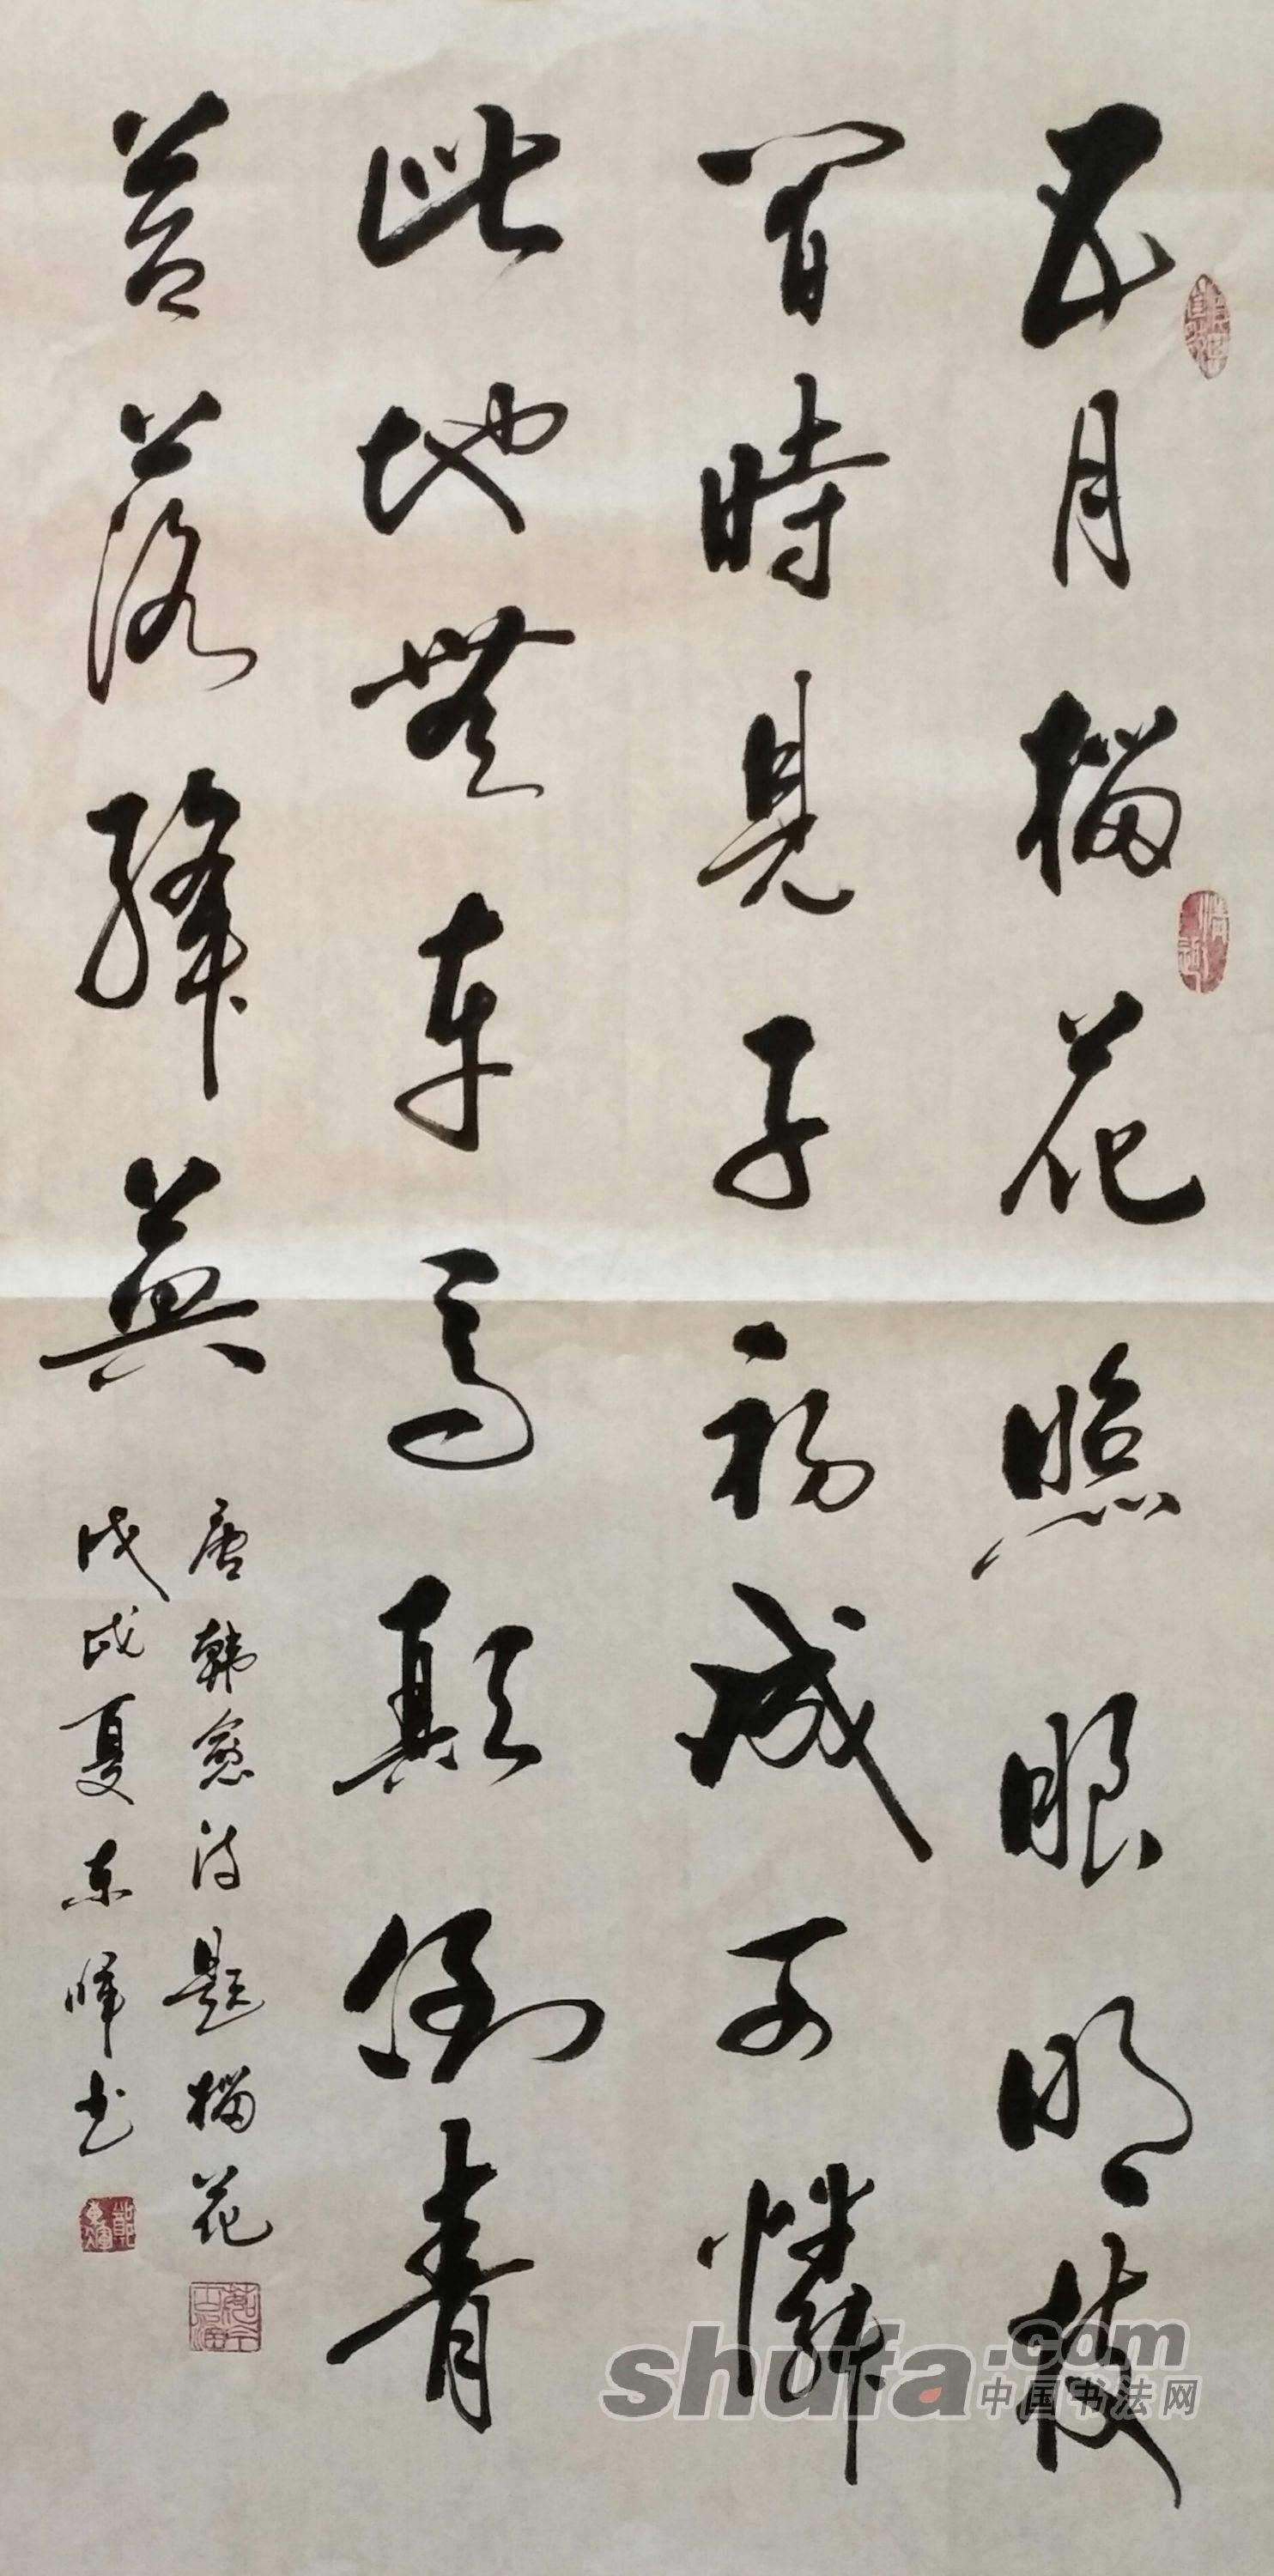 五月榴花照眼明枝
間時見子初成可憐
此地無車馬顛倒青
苔落絳英
唐韩愈诗题榴花
戊戌夏东晖书
shufa.com
中国书法网